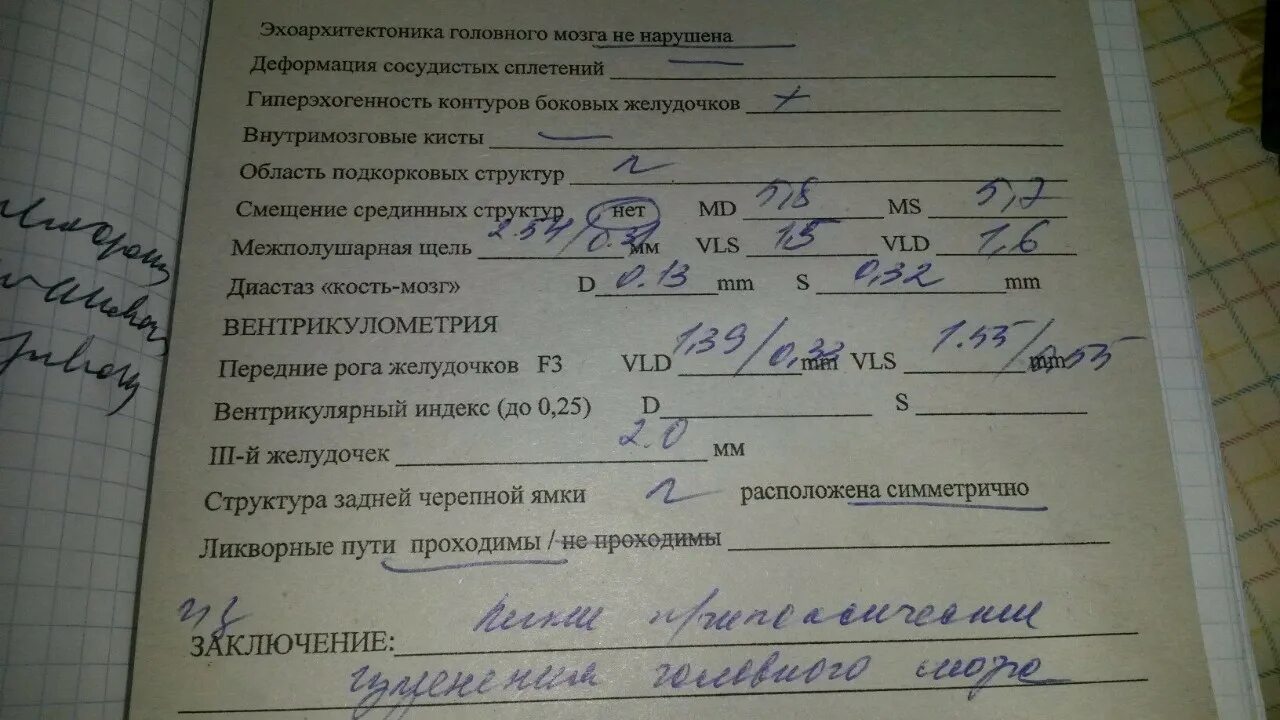 Эхоархитектоника головного мозга не нарушена
Деформация сосудистых сплетений —
Гиперэхогенность контуров боковых желудочков +
Внутримозговые кисты —
Область подкорковых структур
Смещение срединных структур нет MD 5,8 MS 5,7
Межполушарная щель 2.54/0.31 мм VLS 1,5 VLD 1,6
Диастаз «кость-мозг» D 0.13 mm S 0,32 mm
ВЕНТРИКУЛОМЕТРИЯ
Передние рога желудочков F3 VLD 1,39/0,33 mm VLS 1.55/0,55 mm
Вентрикулярный индекс (до 0,25) D S
III-й желудочек 2.0 мм
Структура задней черепной ямки расположена симметрично
Ликворные пути проходимы / не проходимы
ЗАКЛЮЧЕНИЕ:
изменения головного мозга